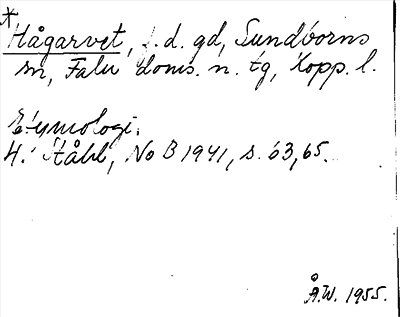 *
Hågarvet, f. d. gd, Sundborns
sn, Falu doms. n. tg, Kopp. l.
Etymologi.
H. Ståhl, NoB 1941, s. 63, 65.
Å.W. 1955.